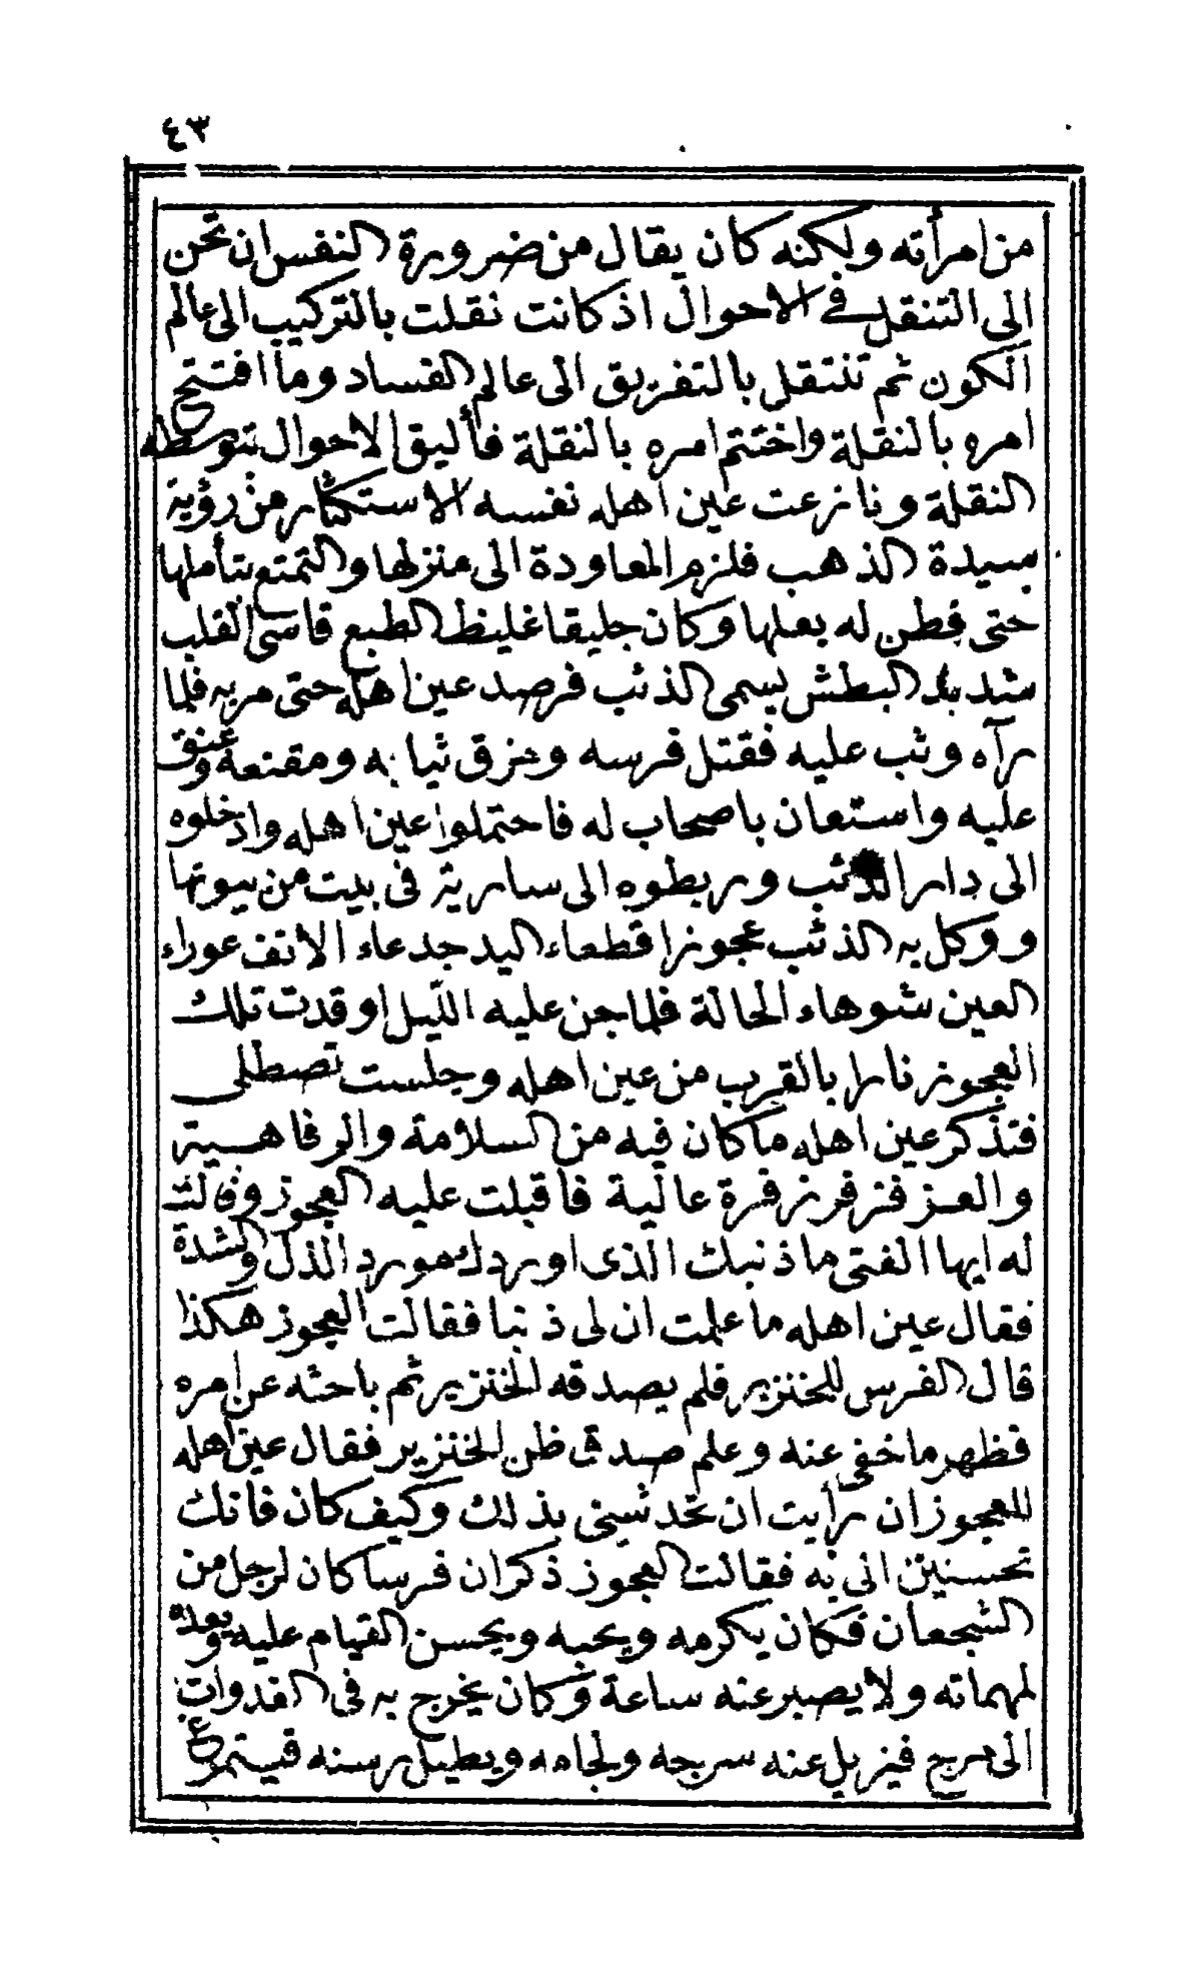 ٤٣
من امرأته ولكنه كان يقال من ضرورة النفس ان تحن
الى التنقل فى الاحوال اذ كانت نقلت بالتركيب الى عالم
الكون ثم تنتقل بالتفريق الى عالم الفساد وما افتتح
امره بالنقلة واختتم امره بالنقلة فأليق الاحوال بتوسطه
النقلة ونازعت عين اهله نفسه الاستكثار من رؤية
سيدة الذهب فلزم المعاودة الى منزلها والتمتع بتأملها
حتى فطن له بعلها وكان جليقا غليظ الطبع قاسى القلب
شديد البطش يسمى الذئب فرصد عين اهله حتى مر به فلما
رآه وثب عليه فقتل فرسه وخزق ثيابه ومقنعه وعنف
عليه واستعان باصحاب له فاحتملوا عين اهله وادخلوه
الى دار الذئب وربطوه الى سارية فى بيت من بيوتها
ووكل به الذئب عجوزا قطعاء اليد جدعاء الأنف عوراء
العين شوهاء الحالة فلما جن عليه الليل اوقدت تلك
العجوز نارا بالقرب من عين اهله وجلست تصطلى
فتذكر عين اهله ما كان فيه من السلامة والرفاهية
والعز فزفر زفرة عالية فاقبلت عليه العجوز وقالت
له ايها الفتى ما ذنبك الذى اوردك مورد الذل والشدة
فقال عين اهله ما علمت ان لى ذنبا فقالت العجوز هكذا
قال الفرس للخنزير فلم يصدقه الخنزير ثم باحثه عن امره
فظهر ما خفى عنه وعلم صدق ظن الخنزير فقال عين اهله
للعجوز ان رأيت ان تحدثينى بذلك وكيف كان فانك
تحسنين الى به فقالت العجوز ذكر ان فرسا كان لرجل من
الشجعان فكان يكرمه ويحبه ويحسن القيام عليه ويعده
لمهماته ولا يصبر عنه ساعة وكان يخرج به فى الغدوات
الى مرج فيزيل عنه سرجه ولجامه ويطيل رسنه فيتمرغ